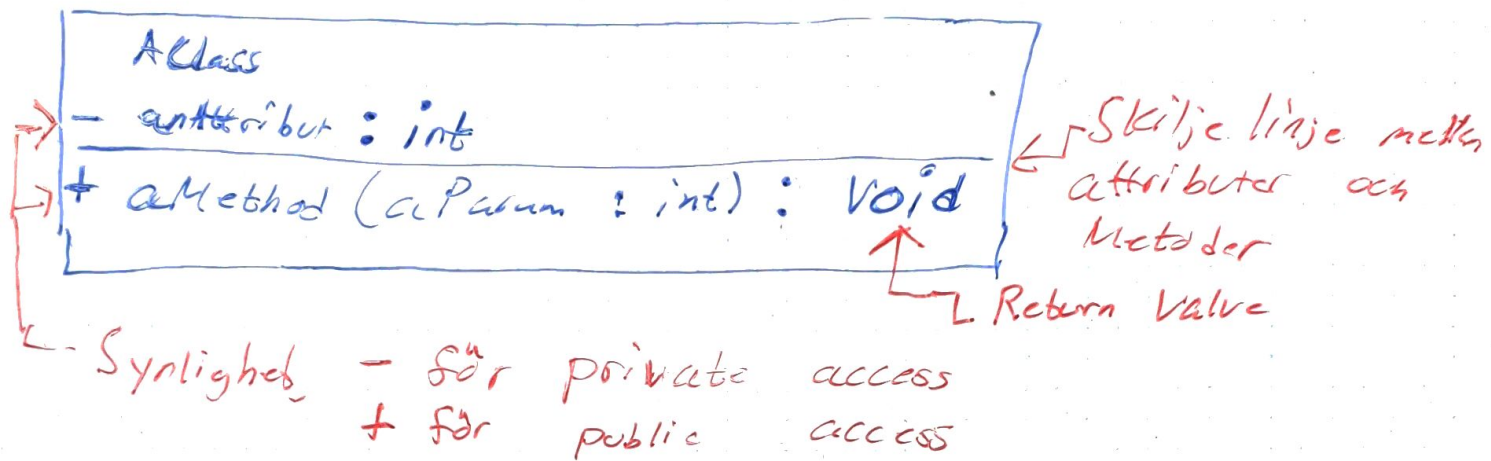 AClass
- anAttribut : int
+ aMethod (aParam : int) : void
Skilje linje mellan
attributer och
Metoder
Return Value
Synlighet - för private access
+ för public access